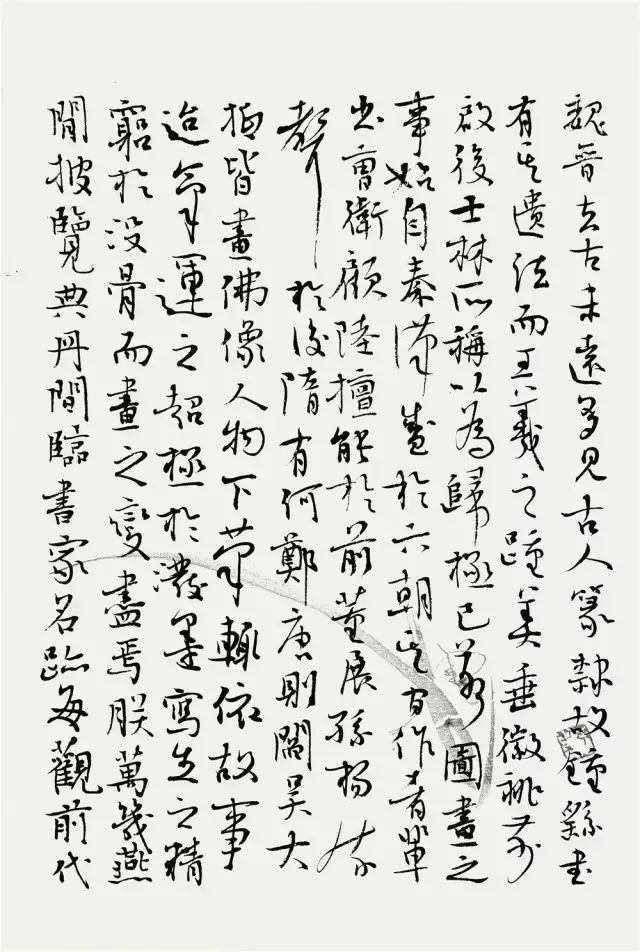 魏晉去古未遠多見古人篆隸故鍾繇書
有其遺法而王羲之踵美垂徽祧前
啟後士林所稱以為歸極已若圖畫之
事始自秦漢盛於六朝其間作者輩
出曹衛顧陸擅能於前董展孫楊發
聲於後隋有何鄭唐則閻吳大
抵皆畫佛像人物下筆輒依故事
迨筆運之超極於潑墨寫生之精
窮於沒骨而畫之變盡焉朕萬幾燕
閒披覽典冊間臨書家名跡每觀前代